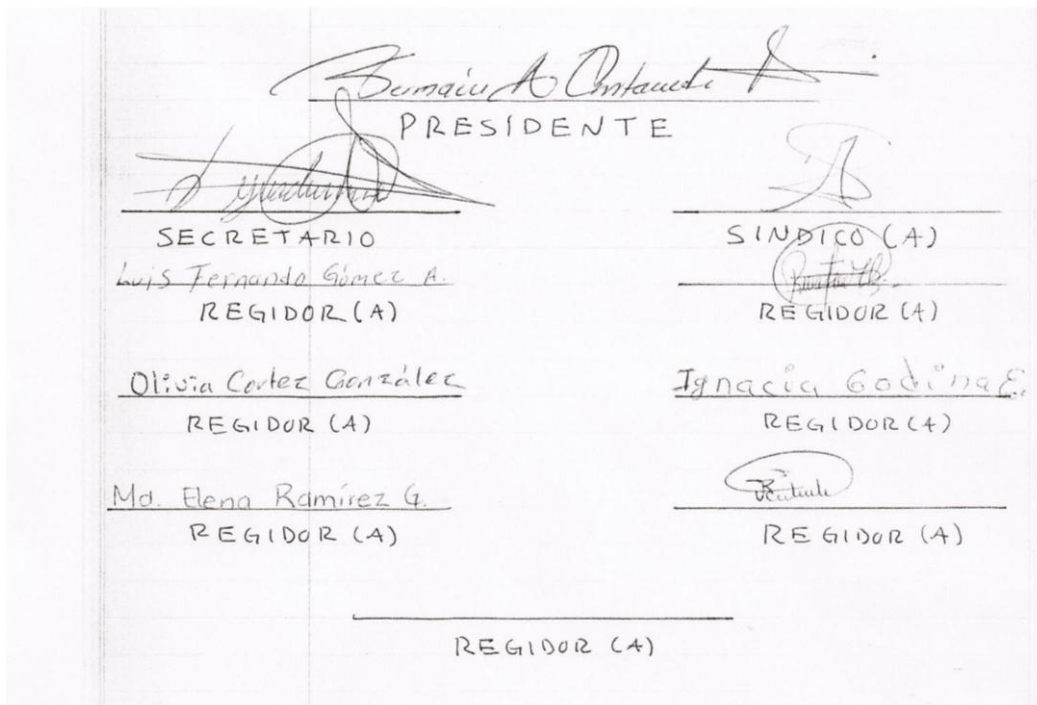 PRESIDENTE
SECRETARIO
SINDICO (A)
Luis Fernando Gómez A.
REGIDOR (A)
REGIDOR (A)
Olivia Cortez González
Ignacia Godina E.
REGIDOR (A)
REGIDOR (A)
Ma. Elena Ramírez G.
REGIDOR (A)
REGIDOR (A)
REGIDOR (A)